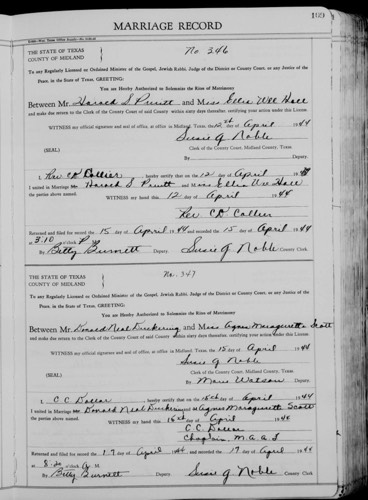 MARRIAGE RECORD
No. 346
THE STATE OF TEXAS
COUNTY OF MIDLAND
To any Regularly Licensed or Ordained Minister of the Gospel, Jewish Rabbi, Judge of the District or County Court, or any Justice of the
Peace, in the State of Texas, GREETING:
You are Hereby Authorized to Solemnize the Rites of Matrimony
Between Mr. Harold S Pruitt and Miss Ella Wee Hall
and make due return to the Clerk of the County Court of said County within sixty days thereafter, certifying your action under this License.
WITNESS my official signature and seal of office, at office in Midland, Texas, the 12th day of April 1944
Susie G. Noble
(SEAL) Clerk of the County Court, Midland County, Texas.
By Deputy.
I, Rev CD Collier hereby certify that on the 12 day of April 19
united in Marriage Mr Harold S Pruitt and Miss Ella Wee Hall
the parties above named. WITNESS my hand this 12 day of April 44
Rev CD Collier
Returned and filed for record the 15 day of April 1944 and recorded the 15 day of April 1944
at 3:10 o'clock P M.
By Betty Burnett Susie G. Noble County Clerk.
No. 347
THE STATE OF TEXAS
COUNTY OF MIDLAND
To any Regularly Licensed or Ordained Minister of the Gospel, Jewish Rabbi, Judge of the District or County Court, or any Justice of the
Peace, in the State of Texas, GREETING:
You are Hereby Authorized to Solemnize the Rites of Matrimony
Between Mr. Donald Neal and Miss Agnes Scott
and make due return to the Clerk of the County Court of said County within sixty days thereafter, certifying your action under this License.
WITNESS my official signature and seal of office, at office in Midland, Texas, the 15 day of April 1944
Susie G. Noble
(SEAL) Clerk of the County Court, Midland County, Texas.
By Deputy.
I, C.C. Dollar hereby certify that on the 16th day of April 1944
united in Marriage Donald Neal and Agnes Scott
the parties above named. WITNESS my hand this 16th day of April 1944
C.C. Dollar
Chaplain, M.A.A.F.
Returned and filed for record the 17 day of April 1944 and recorded the 17 day of April 1944
at o'clock A M.
By Betty Burnett Susie G. Noble County Clerk